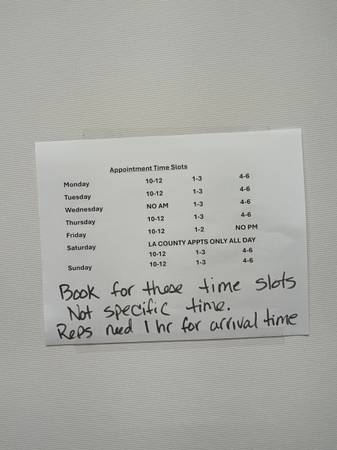 Appointment Time Slots
Monday 10-12 1-3 4-6
Tuesday 10-12 1-3 4-6
Wednesday NO AM 1-3 4-6
Thursday 10-12 1-3 4-6
Friday 10-12 1-2 NO PM
Saturday LA COUNTY APPTS ONLY ALL DAY
10-12 1-3 4-6
Sunday 10-12 1-3 4-6
Book for these time slots
Not specific time.
Reps need 1 hr for arrival time